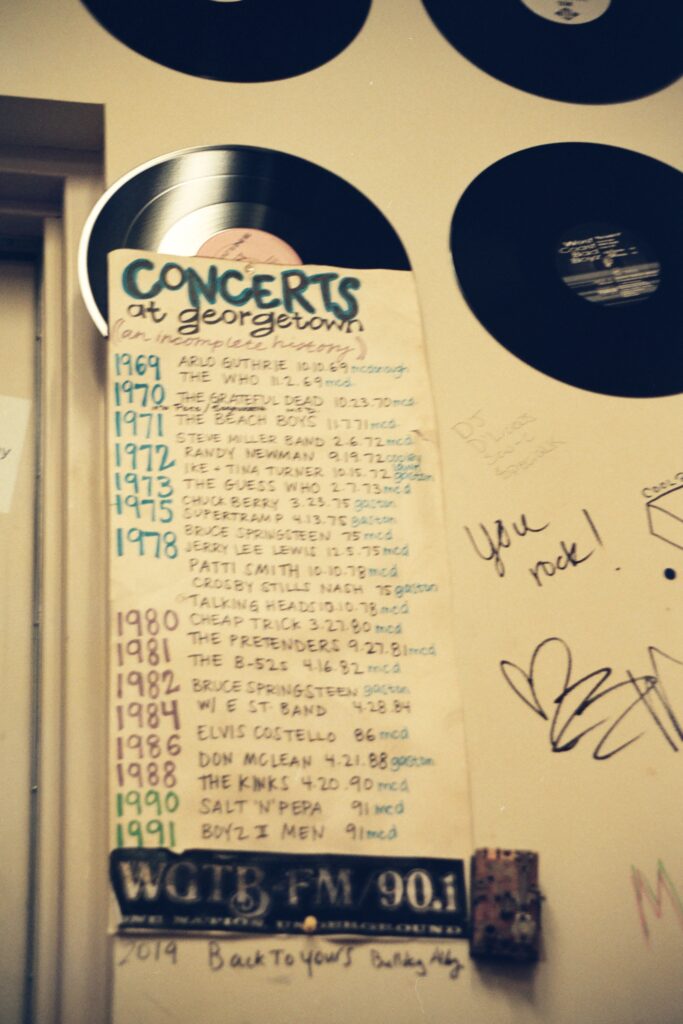 CONCERTS
at georgetown
(an incomplete history)
1969 ARLO GUTHRIE 10.10.69 mcdonough
THE WHO 11.2.69 mcd
1970 THE GRATEFUL DEAD 10.23.70 mcd
1971 THE BEACH BOYS 11.7.71 mcd
STEVE MILLER BAND 2.6.72 mcd
1972 RANDY NEWMAN 9.19.72
IKE + TINA TURNER 10.15.72 gaston
1973 THE GUESS WHO 2.7.73 mcd
1975 CHUCK BERRY 3.23.75 gaston
SUPERTRAMP 4.13.75 gaston
1978 BRUCE SPRINGSTEEN 75 mcd
JERRY LEE LEWIS 12.5.75 mcd
PATTI SMITH 10.10.78 mcd
CROSBY STILLS NASH 75 gaston
TALKING HEADS 10.10.78 mcd
1980 CHEAP TRICK 3.27.80 mcd
1981 THE PRETENDERS 9.27.81 mcd
THE B-52s 4.16.82 mcd
1982 BRUCE SPRINGSTEEN gaston
1984 W/ E ST. BAND 4.28.84
1986 ELVIS COSTELLO 86 mcd
DON MCLEAN 4.21.88 gaston
1988 THE KINKS 4.20.90 mcd
1990 SALT 'N' PEPA 91 mcd
1991 BOYZ II MEN 91 mcd
WGTB-FM/90.1
ONE NATION, UNDERGROUND
2019 Back To Yours Bulldog Alley
DJ
You
rock!
COOL
M